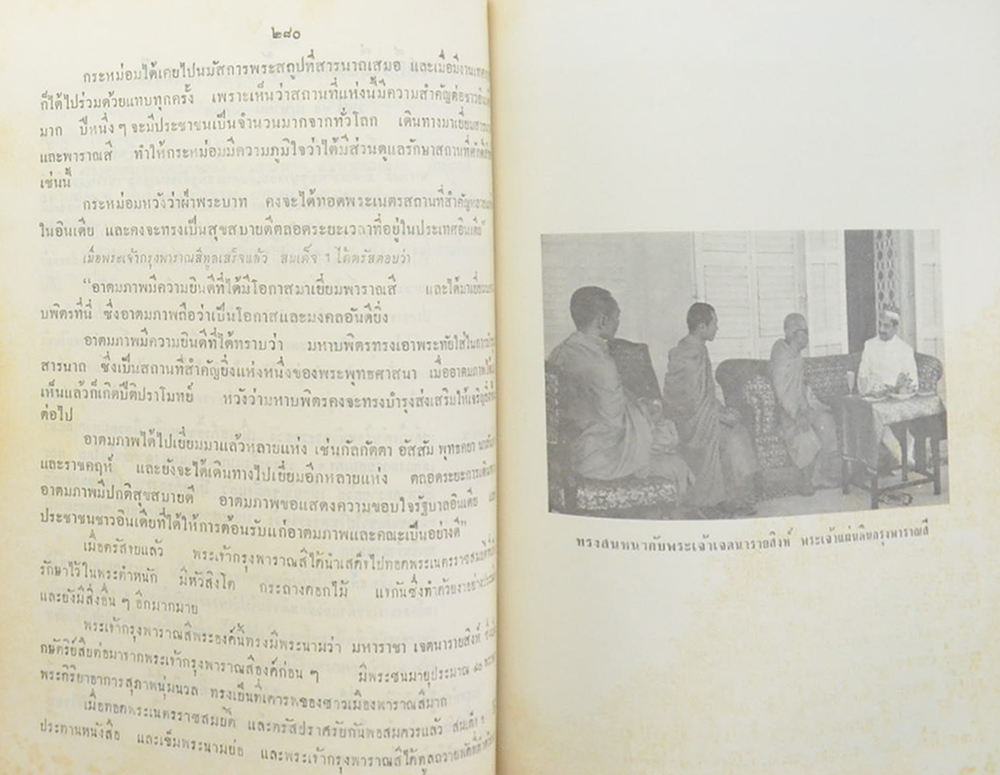 ๒๘๐
กระหม่อมได้เคยไปนมัสการพระสถูปที่สารนาถเสมอ และเมื่อมีงาน
ก็ได้ไปร่วมด้วยแทบทุกครั้ง เพราะเห็นว่าสถานที่แห่งนี้มีความสำคัญต่อชาว
มาก ปีหนึ่ง ๆ จะมีประชาชนเป็นจำนวนมากจากทั่วโลก เดินทางมาเยี่ยม
และพาราณสี ทำให้กระหม่อมมีความภูมิใจว่าได้มีส่วนดูแลรักษาสถานที่
เช่นนี้
กระหม่อมหวังว่าฝ่าพระบาท คงจะได้ทอดพระเนตรสถานที่สำคัญ
ในอินเดีย และคงจะทรงเป็นสุขสบายดีตลอดระยะเวลาที่อยู่ในประเทศอินเดีย"
เมื่อพระเจ้ากรุงพาราณสีทูลเสร็จแล้ว สมเด็จ ฯ ได้ตรัสตอบว่า
"อาตมภาพมีความยินดีที่ได้มีโอกาสมาเยี่ยมพาราณสี และได้มาเยี่ยม
บพิตรที่นี่ ซึ่งอาตมภาพถือว่าเป็นโอกาสและมงคลอันดียิ่ง
อาตมภาพมีความยินดีที่ได้ทราบว่า มหาบพิตรทรงเอาพระทัยใส่ใน
สารนาถ ซึ่งเป็นสถานที่สำคัญยิ่งแห่งหนึ่งของพระพุทธศาสนา เมื่ออาตมภาพ
เห็นแล้วก็เกิดปีติปราโมทย์ หวังว่ามหาบพิตรคงจะทรงบำรุงส่งเสริมให้เจริญ
ต่อไป
อาตมภาพได้ไปเยี่ยมมาแล้วหลายแห่ง เช่นกัลกัตตา อัสสัม พุทธคยา
และราชคฤห์ และยังจะได้เดินทางไปเยี่ยมอีกหลายแห่ง ตลอดระยะการเดินทาง
อาตมภาพมีปกติสุขสบายดี อาตมภาพขอแสดงความขอบใจรัฐบาลอินเดีย
ประชาชนชาวอินเดียที่ได้ให้การต้อนรับแก่อาตมภาพและคณะเป็นอย่างดี"
เมื่อตรัสายแล้ว พระเจ้ากรุงพาราณสีได้นำเสด็จไปทอดพระเนตรราชสมบัติ
รักษาไว้ในพระตำหนัก มีหัวสิงโต กระถางดอกไม้ แจกันซึ่งทำด้วยงาอย่าง
และยังมีสิ่งอื่น ๆ อีกมากมาย
พระเจ้ากรุงพาราณสีพระองค์นี้ทรงมีพระนามว่า มหาราชา เจตนารายสิงห์
กษัตริย์สืบต่อมาจากพระเจ้ากรุงพาราณสีองค์ก่อน ๆ มีพระชนมายุประมาณ
พระกิริยาอาการสุภาพนุ่มนวล ทรงเป็นที่เคารพของชาวเมืองพาราณสีมาก
เมื่อทอดพระเนตรราชสมบัติ และตรัสปราศรัยกันพอสมควรแล้ว สมเด็จ ฯ
ประทานหนังสือ และเข็มพระนามย่อ และพระเจ้ากรุงพาราณสีได้ทูลถวาย
ทรงสนทนากับพระเจ้าเจตนารายสิงห์ พระเจ้าแผ่นดินกรุงพาราณสี